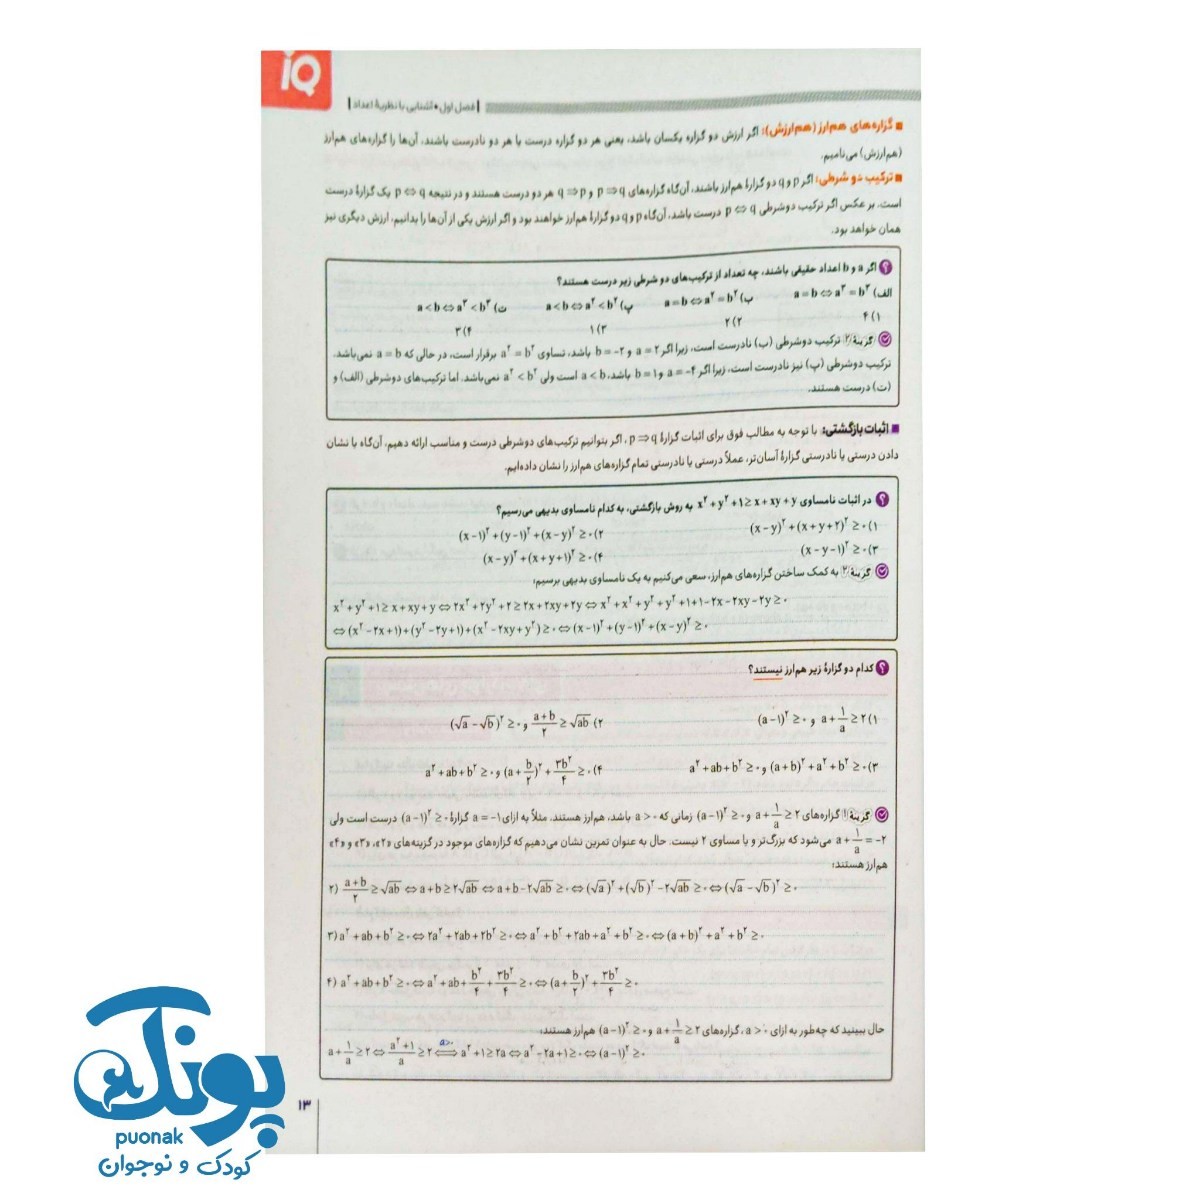 iQ
فصل اول • آشنایی با نظریهٔ اعداد
گزاره‌های هم‌ارز (هم‌ارزش): اگر ارزش دو گزاره یکسان باشد، یعنی هر دو گزاره درست یا هر دو نادرست باشند، آن‌ها را گزاره‌های هم‌ارز
(هم‌ارزش) می‌نامیم.
ترکیب دو شرطی: اگر p و q دو گزارهٔ هم‌ارز باشند، آن‌گاه گزاره‌های p ⇒ q و q ⇒ p هر دو درست هستند و در نتیجه p ⇔ q یک گزارهٔ درست
است. بر عکس اگر ترکیب دوشرطی p ⇔ q درست باشد، آن‌گاه p و q دو گزارهٔ هم‌ارز خواهند بود و اگر ارزش یکی از آن‌ها را بدانیم، ارزش دیگری نیز
همان خواهد بود.
اگر a و b اعداد حقیقی باشند، چه تعداد از ترکیب‌های دو شرطی زیر درست هستند؟
الف) a = b ⇔ a³ = b³ ب) a = b ⇔ a² = b² پ) a < b ⇔ a² < b² ت) a < b ⇔ a³ < b³
۱) ۴ ۲) ۲ ۳) ۱ ۴) ۳
گزینهٔ ۲ ترکیب دوشرطی (ب) نادرست است، زیرا اگر a = ۲ و b = −۲ باشد، تساوی a² = b² برقرار است، در حالی که a = b نمی‌باشد.
ترکیب دوشرطی (پ) نیز نادرست است، زیرا اگر a = −۴ و b = ۱ باشد، a < b است ولی a² < b² نمی‌باشد. اما ترکیب‌های دوشرطی (الف) و
(ت) درست هستند.
اثبات بازگشتی: با توجه به مطالب فوق برای اثبات گزارهٔ p ⇒ q، اگر بتوانیم ترکیب‌های دوشرطی درست و مناسب ارائه دهیم، آن‌گاه با نشان
دادن درستی یا نادرستی گزارهٔ آسان‌تر، عملاً درستی یا نادرستی تمام گزاره‌های هم‌ارز را نشان داده‌ایم.
در اثبات نامساوی x² + y² + ۱ ≥ x + xy + y به روش بازگشتی، به کدام نامساوی بدیهی می‌رسیم؟
۱) (x − y)² + (x + y + ۲)² ≥ ۰ ۲) (x − ۱)² + (y − ۱)² + (x − y)² ≥ ۰
۳) (x − y − ۱)² ≥ ۰ ۴) (x − y)² + (x + y + ۱)² ≥ ۰
گزینهٔ ۲ به کمک ساختن گزاره‌های هم‌ارز، سعی می‌کنیم به یک نامساوی بدیهی برسیم:
x² + y² + ۱ ≥ x + xy + y ⇔ ۲x² + ۲y² + ۲ ≥ ۲x + ۲xy + ۲y ⇔ x² + x² + y² + y² + ۱ + ۱ − ۲x − ۲xy − ۲y ≥ ۰
⇔ (x² − ۲x + ۱) + (y² − ۲y + ۱) + (x² − ۲xy + y²) ≥ ۰ ⇔ (x − ۱)² + (y − ۱)² + (x − y)² ≥ ۰
کدام دو گزارهٔ زیر هم‌ارز نیستند؟
۱) a + ۱/a ≥ ۲ و (a − ۱)² ≥ ۰ ۲) (a + b)/۲ ≥ √ab و (√a − √b)² ≥ ۰
۳) (a + b)² + a² + b² ≥ ۰ و a² + ab + b² ≥ ۰ ۴) (a + b/۲)² + ۳b²/۴ ≥ ۰ و a² + ab + b² ≥ ۰
گزینهٔ ۱ گزاره‌های a + ۱/a ≥ ۲ و (a − ۱)² ≥ ۰ زمانی که a > ۰ باشد، هم‌ارز هستند. مثلاً به ازای a = −۱ گزارهٔ (a − ۱)² ≥ ۰ درست است ولی
a + ۱/a = −۲ می‌شود که بزرگ‌تر و یا مساوی ۲ نیست. حال به عنوان تمرین نشان می‌دهیم که گزاره‌های موجود در گزینه‌های «۲»، «۳» و «۴»
هم‌ارز هستند:
۲) (a + b)/۲ ≥ √ab ⇔ a + b ≥ ۲√ab ⇔ a + b − ۲√ab ≥ ۰ ⇔ (√a)² + (√b)² − ۲√ab ≥ ۰ ⇔ (√a − √b)² ≥ ۰
۳) a² + ab + b² ≥ ۰ ⇔ ۲a² + ۲ab + ۲b² ≥ ۰ ⇔ a² + b² + ۲ab + a² + b² ≥ ۰ ⇔ (a + b)² + a² + b² ≥ ۰
۴) a² + ab + b² ≥ ۰ ⇔ a² + ab + b²/۴ + ۳b²/۴ ≥ ۰ ⇔ (a + b/۲)² + ۳b²/۴ ≥ ۰
حال ببینید که چه‌طور به ازای a > ۰، گزاره‌های a + ۱/a ≥ ۲ و (a − ۱)² ≥ ۰ هم‌ارز هستند:
a + ۱/a ≥ ۲ ⇔ (a² + ۱)/a ≥ ۲ ⇔ a>۰ a² + ۱ ≥ ۲a ⇔ a² − ۲a + ۱ ≥ ۰ ⇔ (a − ۱)² ≥ ۰
۱۳
پونک
puonak
کودک و نوجوان